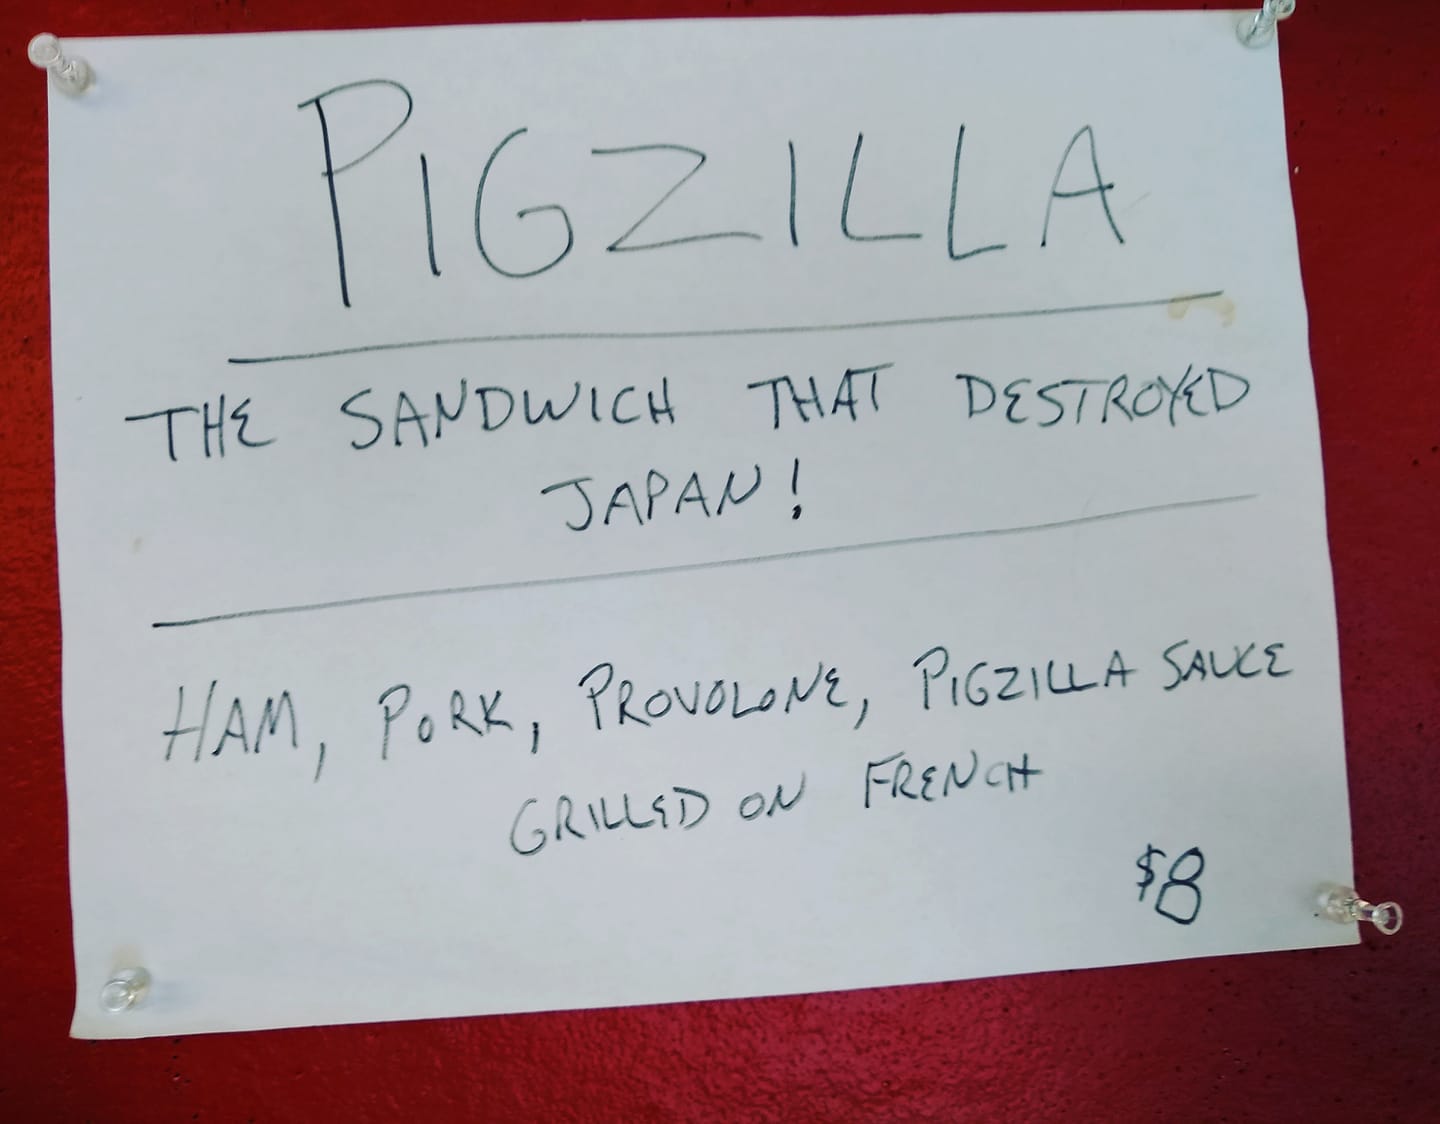 PIGZILLA
THE SANDWICH THAT DESTROYED
JAPAN!
HAM, PORK, PROVOLONE, PIGZILLA SAUCE
GRILLED ON FRENCH
$8